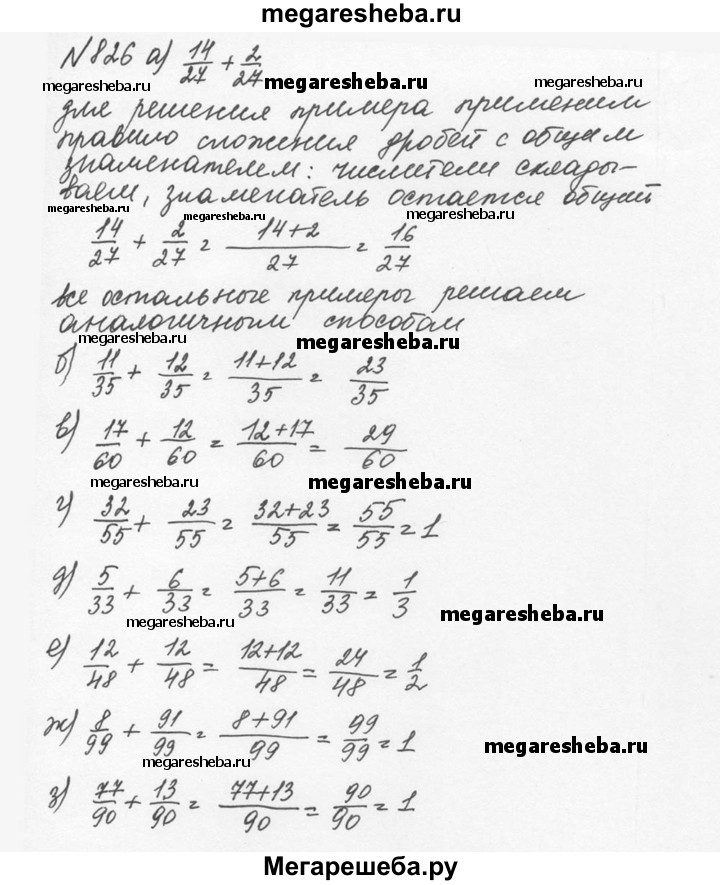 megaresheba.ru
N 826 а) 14/27 + 2/27
megaresheba.ru megaresheba.ru
для решения примера применим
megaresheba.ru megaresheba.ru
правило сложения дробей с общим
знаменателем: числители склады-
ваем, знаменатель остается общий
megaresheba.ru megaresheba.ru megaresheba.ru
14/27 + 2/27 = 14+2/27 = 16/27
все остальные примеры решаем
аналогичным способом
megaresheba.ru megaresheba.ru
б) 11/35 + 12/35 = 11+12/35 = 23/35
в) 17/60 + 12/60 = 12+17/60 = 29/60
megaresheba.ru megaresheba.ru
г) 32/55 + 23/55 = 32+23/55 = 55/55 = 1
д) 5/33 + 6/33 = 5+6/33 = 11/33 = 1/3
megaresheba.ru megaresheba.ru
е) 12/48 + 12/48 = 12+12/48 = 24/48 = 1/2
ж) 8/99 + 91/99 = 8+91/99 = 99/99 = 1
megaresheba.ru megaresheba.ru
з) 77/90 + 13/90 = 77+13/90 = 90/90 = 1
Мегарешеба.ру